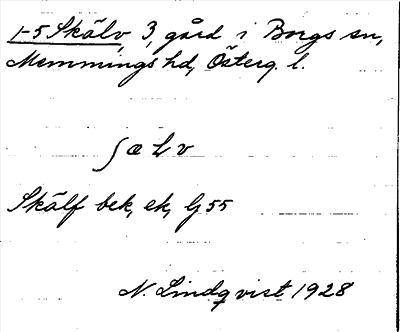 1-5 Skälv, 3, gård i Borgs sn,
Memmings hd, Österg. l.
ʃælv
Skälf bek, ek, G 55
N. Lindqvist 1928